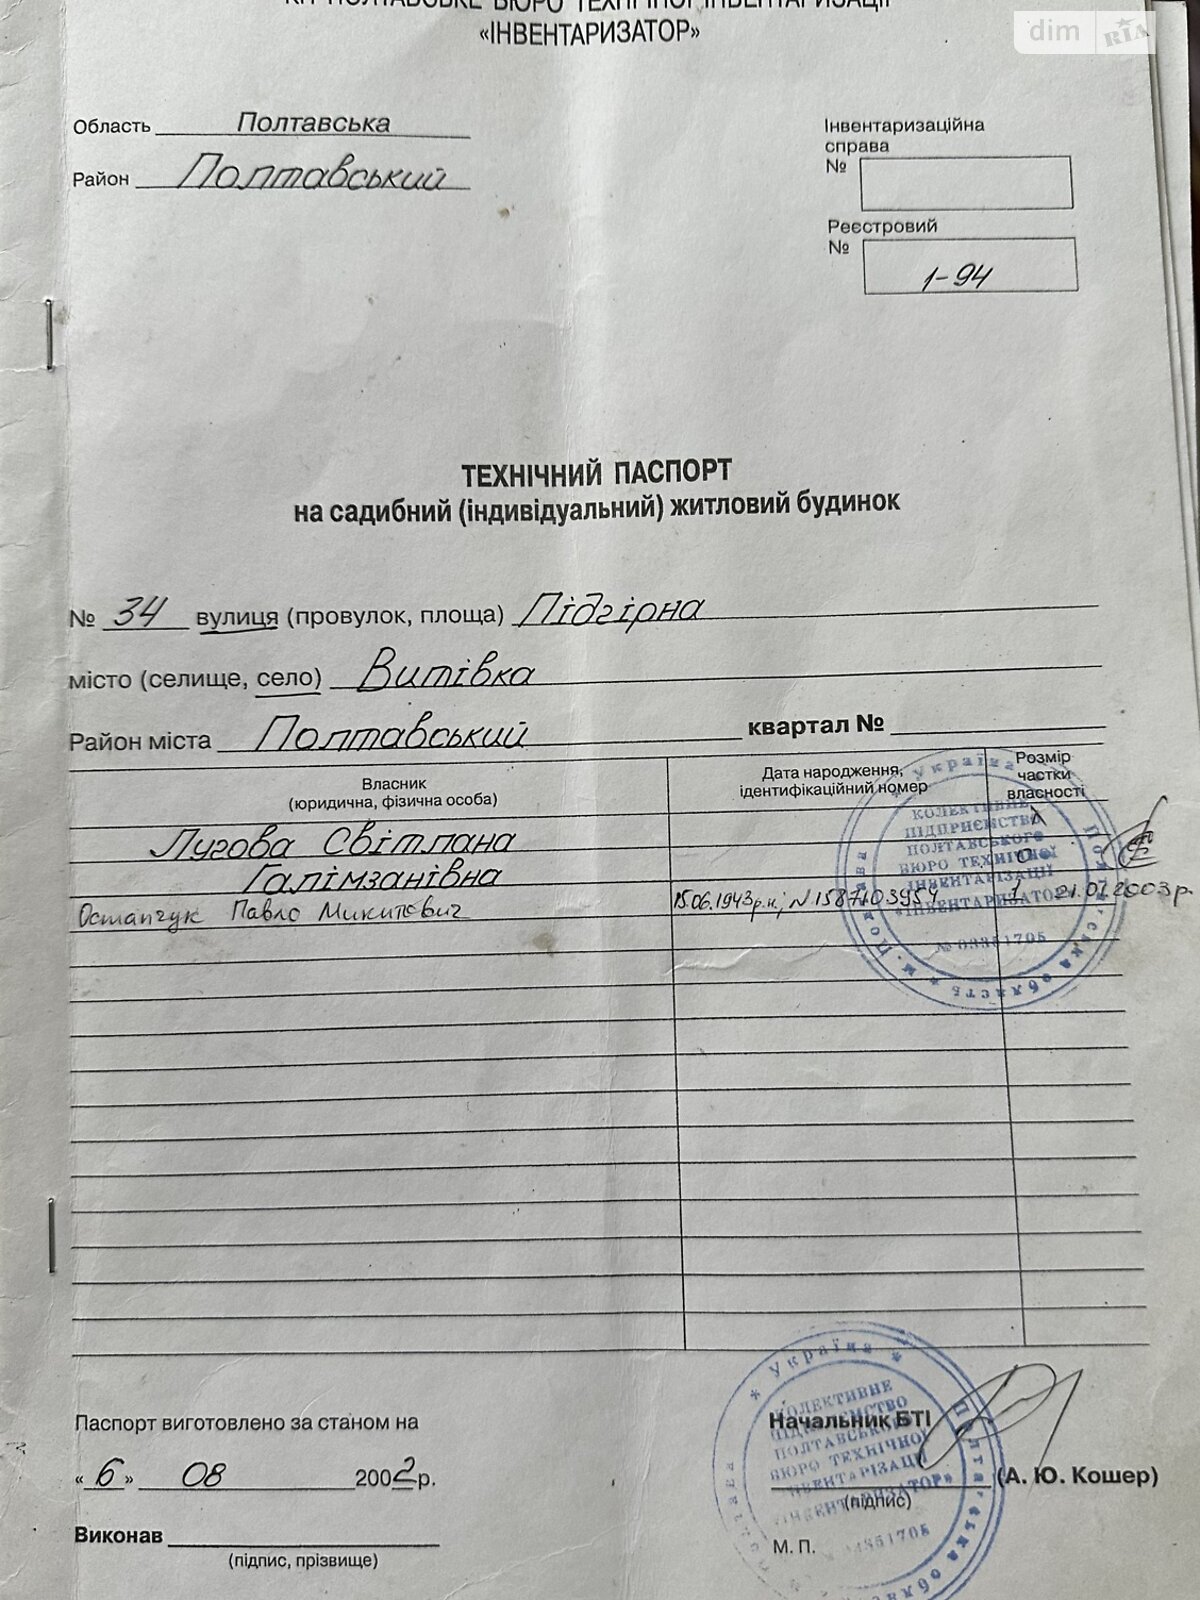 КП ПОЛТАВСЬКЕ БЮРО ТЕХНІЧНОЇ ІНВЕНТАРИЗАЦІЇ
«ІНВЕНТАРИЗАТОР»
dim RIA
Область Полтавська
Район Полтавський
Інвентаризаційна
справа
№
Реєстровий
№
1-94
ТЕХНІЧНИЙ ПАСПОРТ
на садибний (індивідуальний) житловий будинок
№ 34 вулиця (провулок, площа) Підгірна
місто (селище, село) Витівка
Район міста Полтавський квартал №
Власник
(юридична, фізична особа)
Дата народження,
ідентифікаційний номер
Розмір
частки
власності
Лугова Світлана
Галімзанівна
Остапчук Павло Микитович 15.06.1943р.н; N1587103954 1 21.07.2003р.
Україна
м. Полтава
Полтавська область
КОЛЕКТИВНЕ
ПІДПРИЄМСТВО
ПОЛТАВСЬКОГО
БЮРО ТЕХНІЧНОЇ
ІНВЕНТАРІЗАЦІЇ
«ІНВЕНТАРИЗАТОР»
№ 03351705
Паспорт виготовлено за станом на
« 6 » 08 2002р.
Виконав
(підпис, прізвище)
Начальник БТІ
(А. Ю. Кошер)
(підпис)
М. П.
Україна
КОЛЕКТИВНЕ
ПІДПРИЄМСТВО
ПОЛТАВСЬКОГО
БЮРО ТЕХНІЧНОЇ
ІНВЕНТАРІЗАЦІЇ
«ІНВЕНТАРИЗАТОР»
03351705